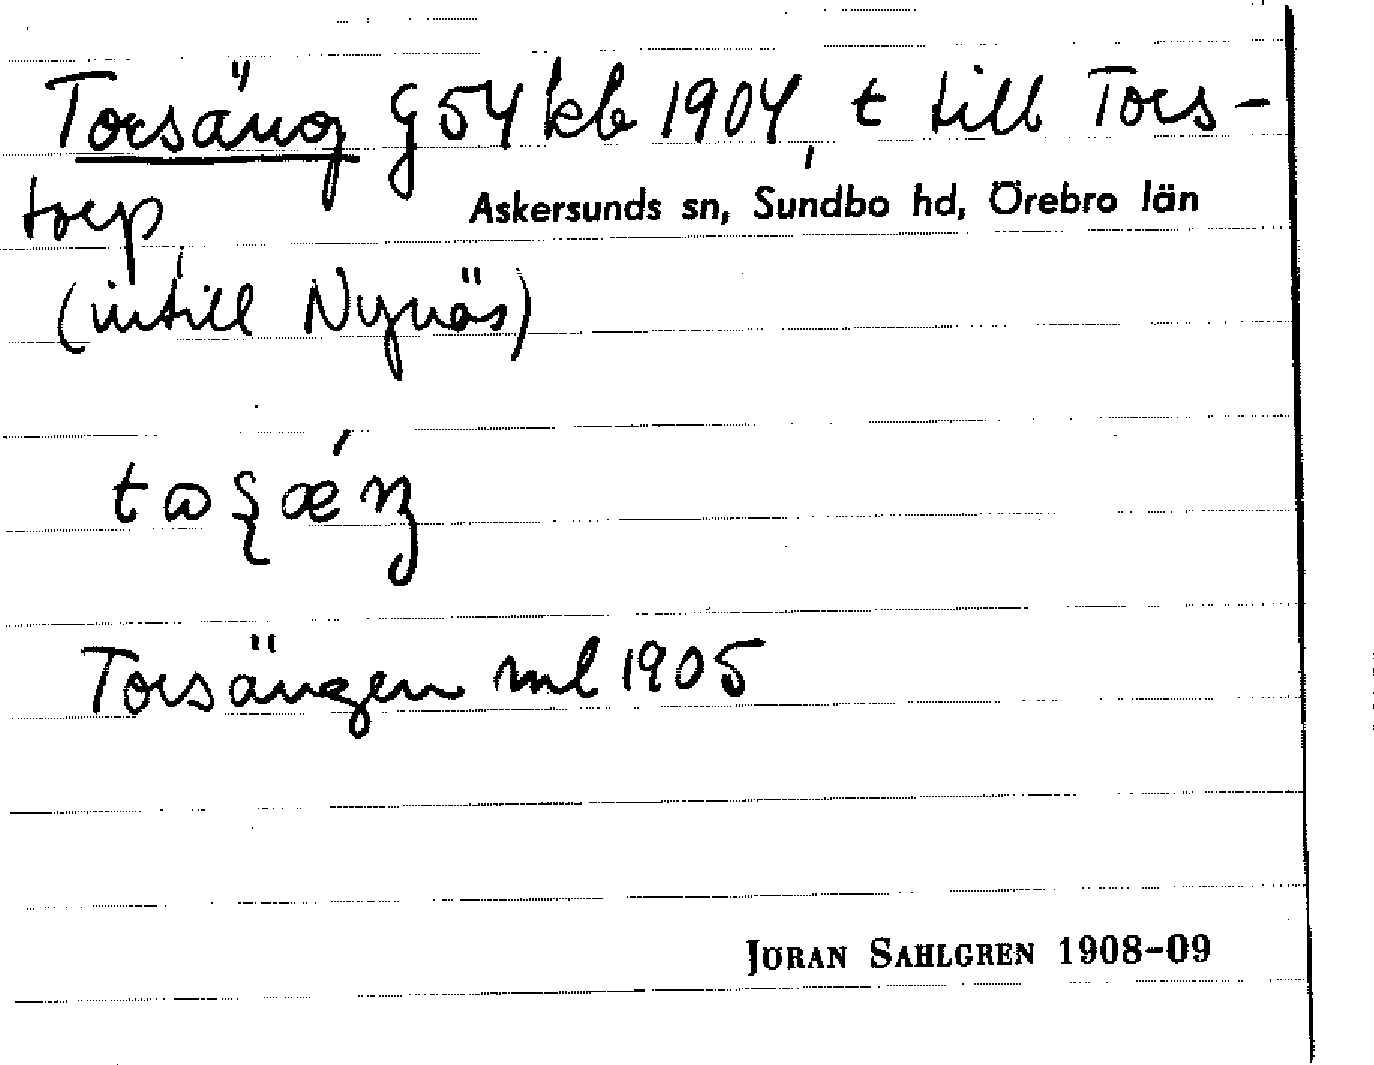 Torsäng G54 kb 1904, t till Tors-
torp,
Askersunds sn, Sundbo hd, Örebro län
(intill Nynäs)
Torsängen ml 1905
JÖRAN SAHLGREN 1908-09